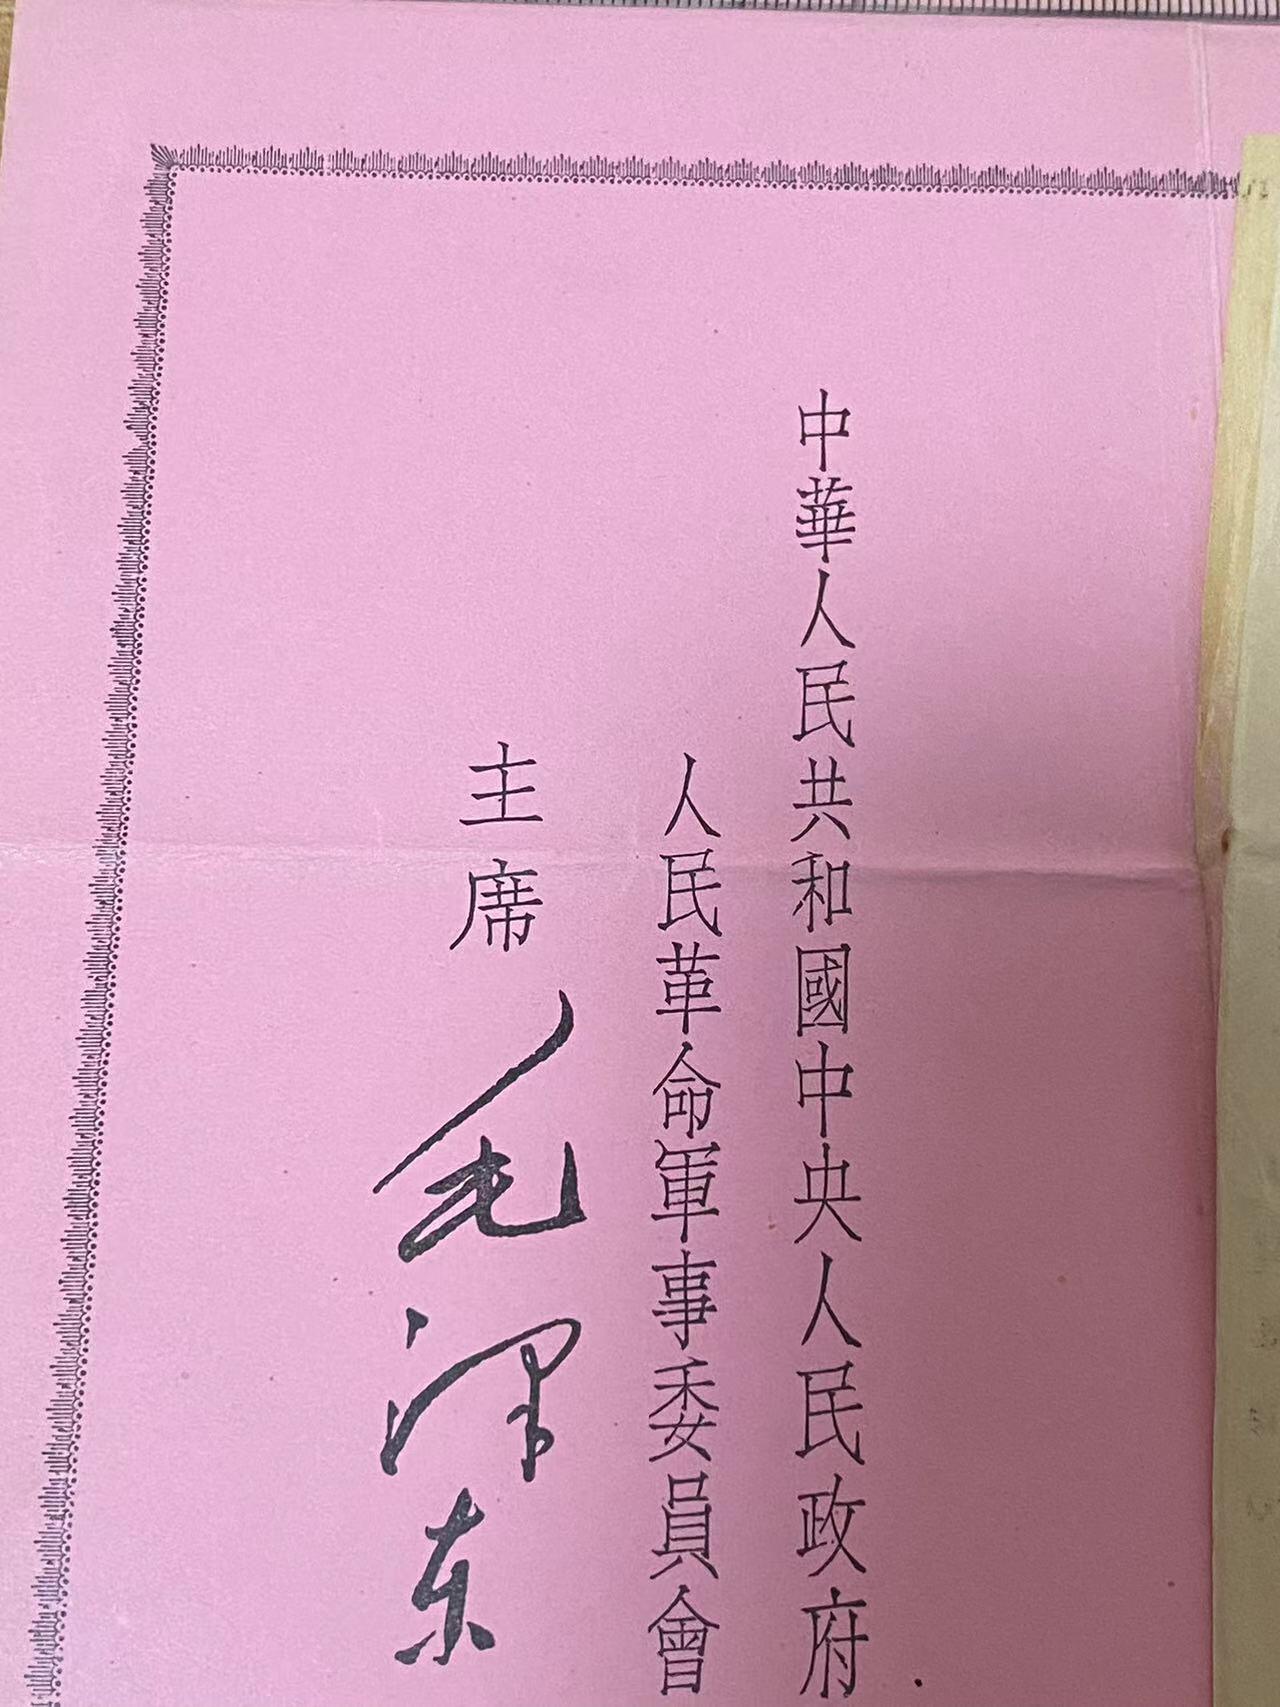 中華人民共和國中央人民政府
人民革命軍事委員會
主席 毛澤东